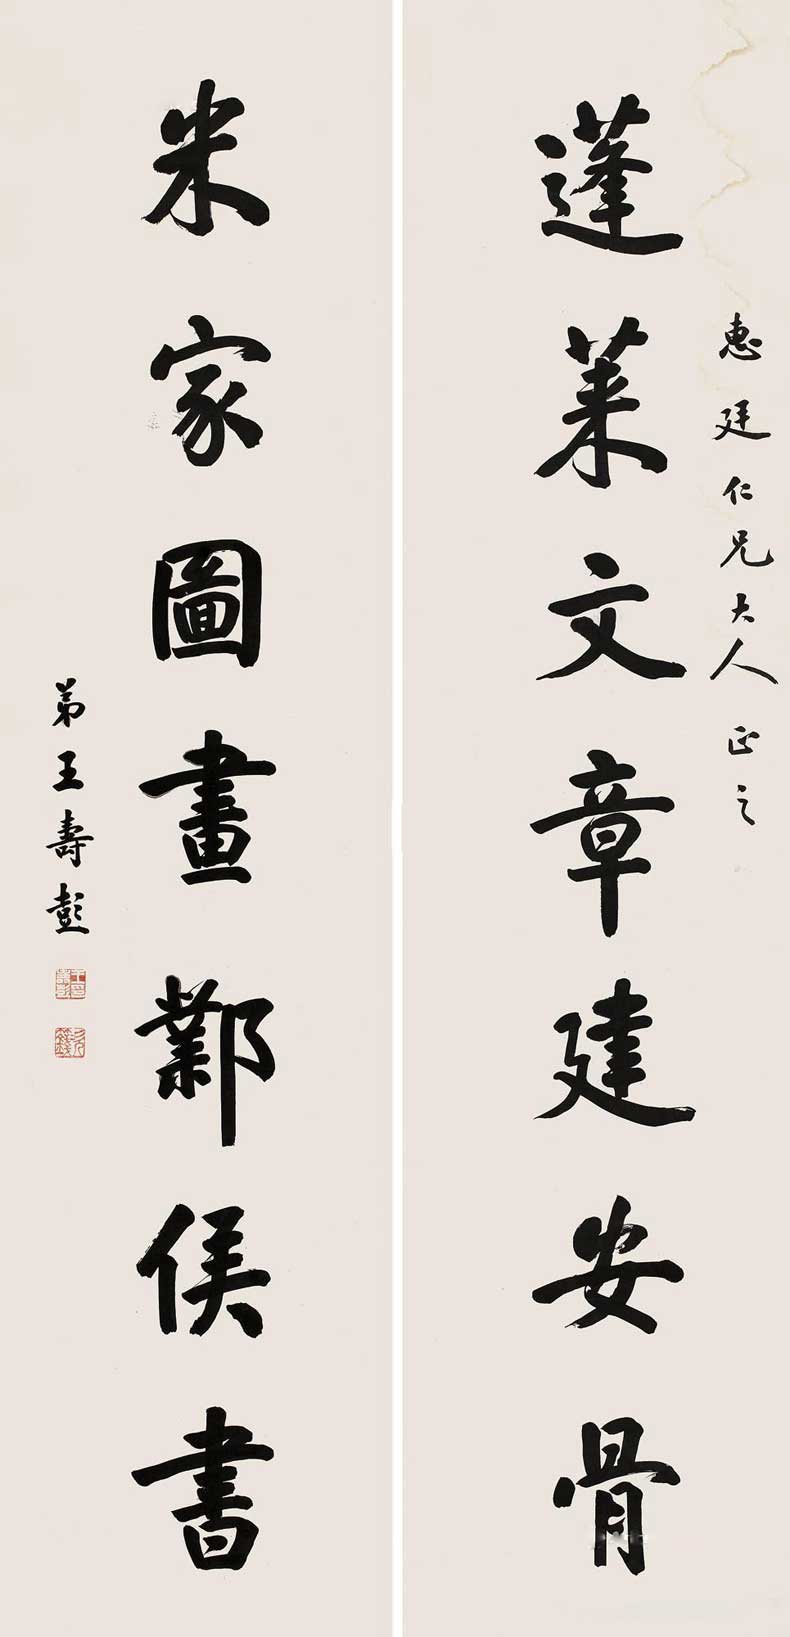 惠廷仁兄大人正之
蓬萊文章建安骨
米家圖畫鄴侯書
弟王壽彭